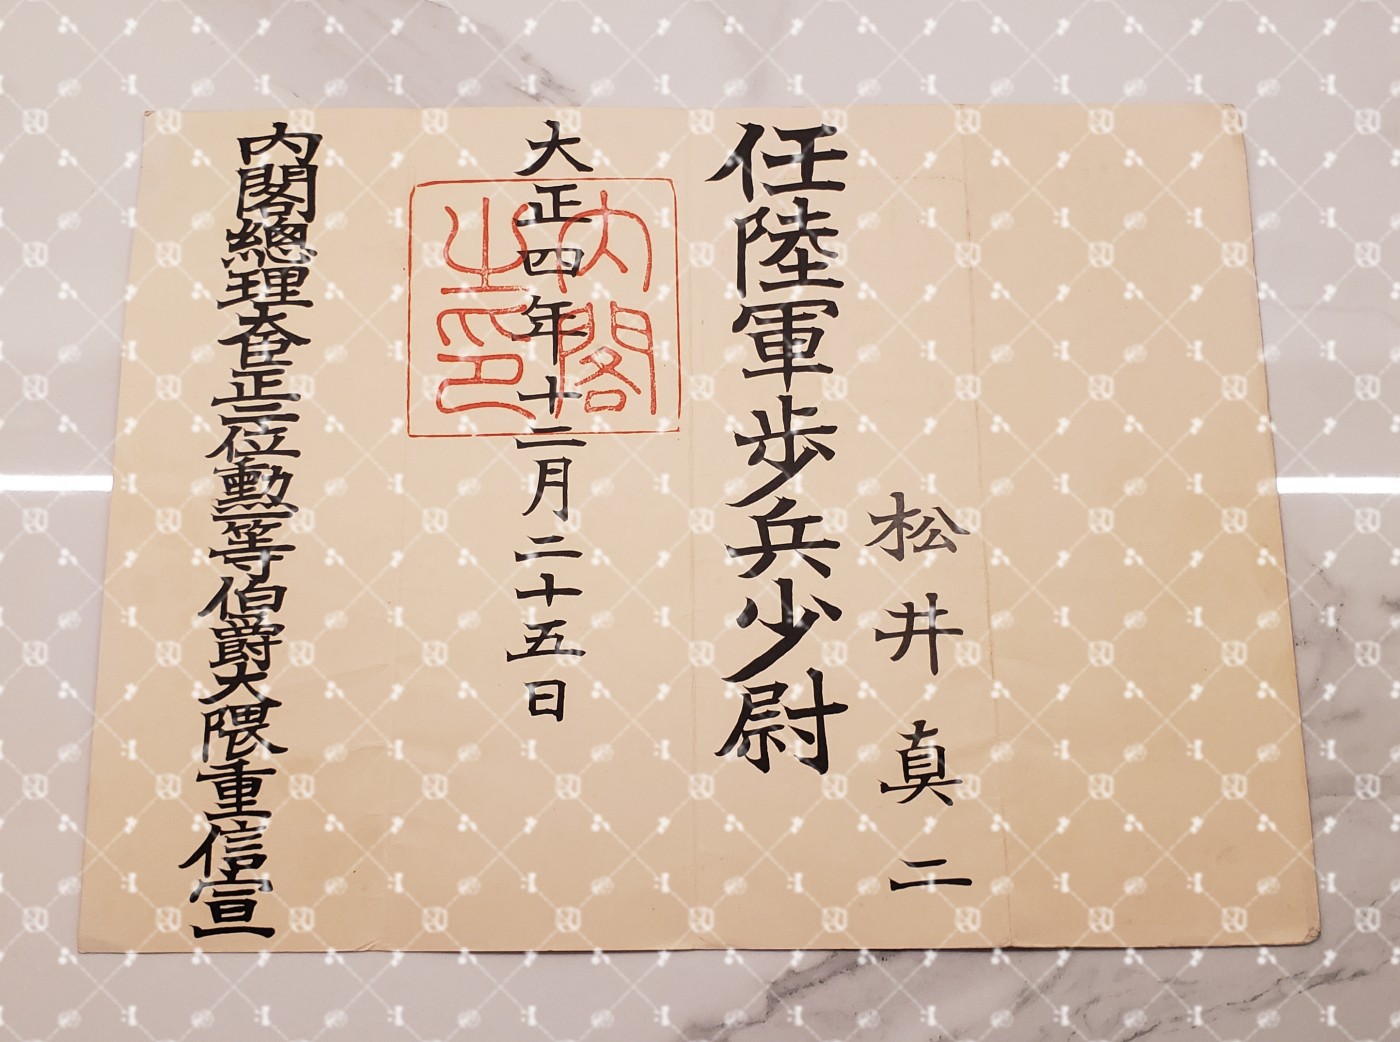 松井真二
任陸軍歩兵少尉
大正四年十二月二十五日
内閣之印
内閣總理大臣正二位勲一等伯爵大隈重信宣